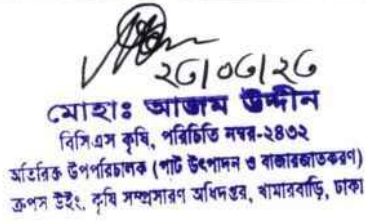 ২৫/০৫/২৫
মোহাঃ আজম উদ্দীন
বিসিএস কৃষি, পরিচিতি নম্বর-২৪৩২
অতিরিক্ত উপপরিচালক (পাট উৎপাদন ও বাজারজাতকরণ)
ক্রপস উইং, কৃষি সম্প্রসারণ অধিদপ্তর, খামারবাড়ি, ঢাকা